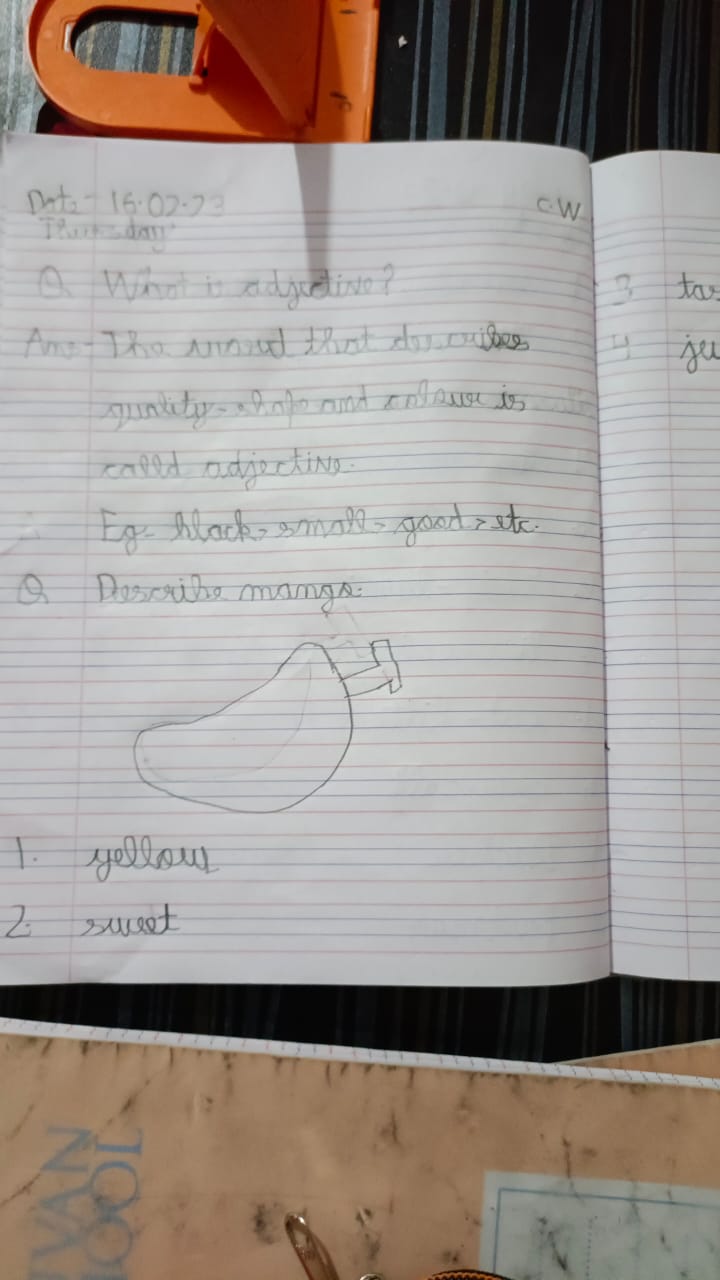 Date - 16.02.23
Thursday
C.W
Q What is adjective?
Ans- The word that describes
quality, shape and colour is
called adjective.
Eg- black, small, good, etc.
Q Describe mango.
1. yellow
2. sweet
3 tas
4 ju
VAN
OOL